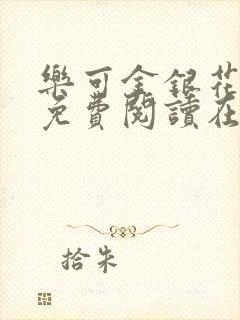 樂可金銀花
免費閱讀在
拾朱